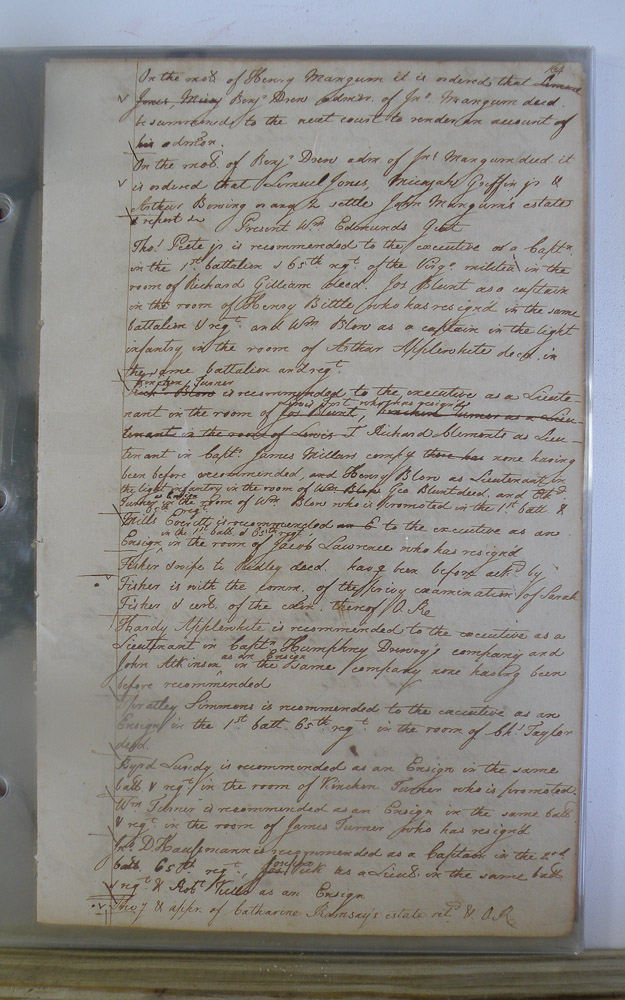 On the mot. of Henry Mangum it is ordered that
Jones, Benj. Drew admr. of Jno. Mangum deced.
be summoned to the next court to render an account of
his admton.
On the mot. of Benj. Drew adm of Jno. Mangum deed it
is ordered that Lemuel Jones, Micajah Griffin jr &
Arthur Boning or any 2 settle John Mangum's estates
& report &c Present Wm Edmunds Gent
Thos. Peete jr is recommended to the executive as a Captn
in the 1st battalion & 65th regt. of the Virga. militia in the
room of Richard Gilliam deed. Jos Blunt as a captain
in the room of Henry Bittle who has resign'd in the same
battalion & regt. and Wm Blow as a captain in the light
infantry in the room of Arthur Applewhite decd. in
the same battalion and regt.
Kinchen Turner
Blow is recommended to the executive as a Lieute-
who has resigned
nant in the room of Jos Blunt, Kinchen Turner as a Lieu-
tenant in the room of Lewis F Richard Clements as Lieu-
tenant in Captn. James Millars compy there has none having
been before recommended, and Henry Blow as Lieutenant in
the light infantry in the room of Wm Blow Geo Blunt deed. and
Turner as Ensign in the room of Wm Blow who is promoted in the 1st batt. &
65th regt.
Mills Everitt is recommended as E to the executive as an
in the 1st batt. & 65th regt.
Ensign in the room of Jacob Lawrence who has resignd
Fisher & wife to deed. havg been before ackd. by
Fisher is with the comm. of the privy examination of Sarah
Fisher & cert. of the exon. thereof O. Re
Hardy Applewhite is recommended to the executive as a
Lieutenant in Captn Humphrey Drewry's company and
as an Ensign
John Atkinson in the same company none having been
before recommended
Spratley Simmons is recommended to the executive as an
Ensign in the 1st batt. 65th regt. in the room of Chs. Taylor
deed.
Byrd Lundy is recommended as an Ensign in the same
batt & regt. in the room of Kinchen Turner who is promoted.
Wm Turner is recommended as an Ensign in the same batt.
& regt. in the room of James Turner who has resignd
Jno. D Haussmann is recommended as a Captain in the 2nd
batt. 65th regt., Vick as a Lieut. in the same batt
& regt. & Robt. as an Ensign
Invy & appr. of Catharine Ramsay's estate retd. & O. R.